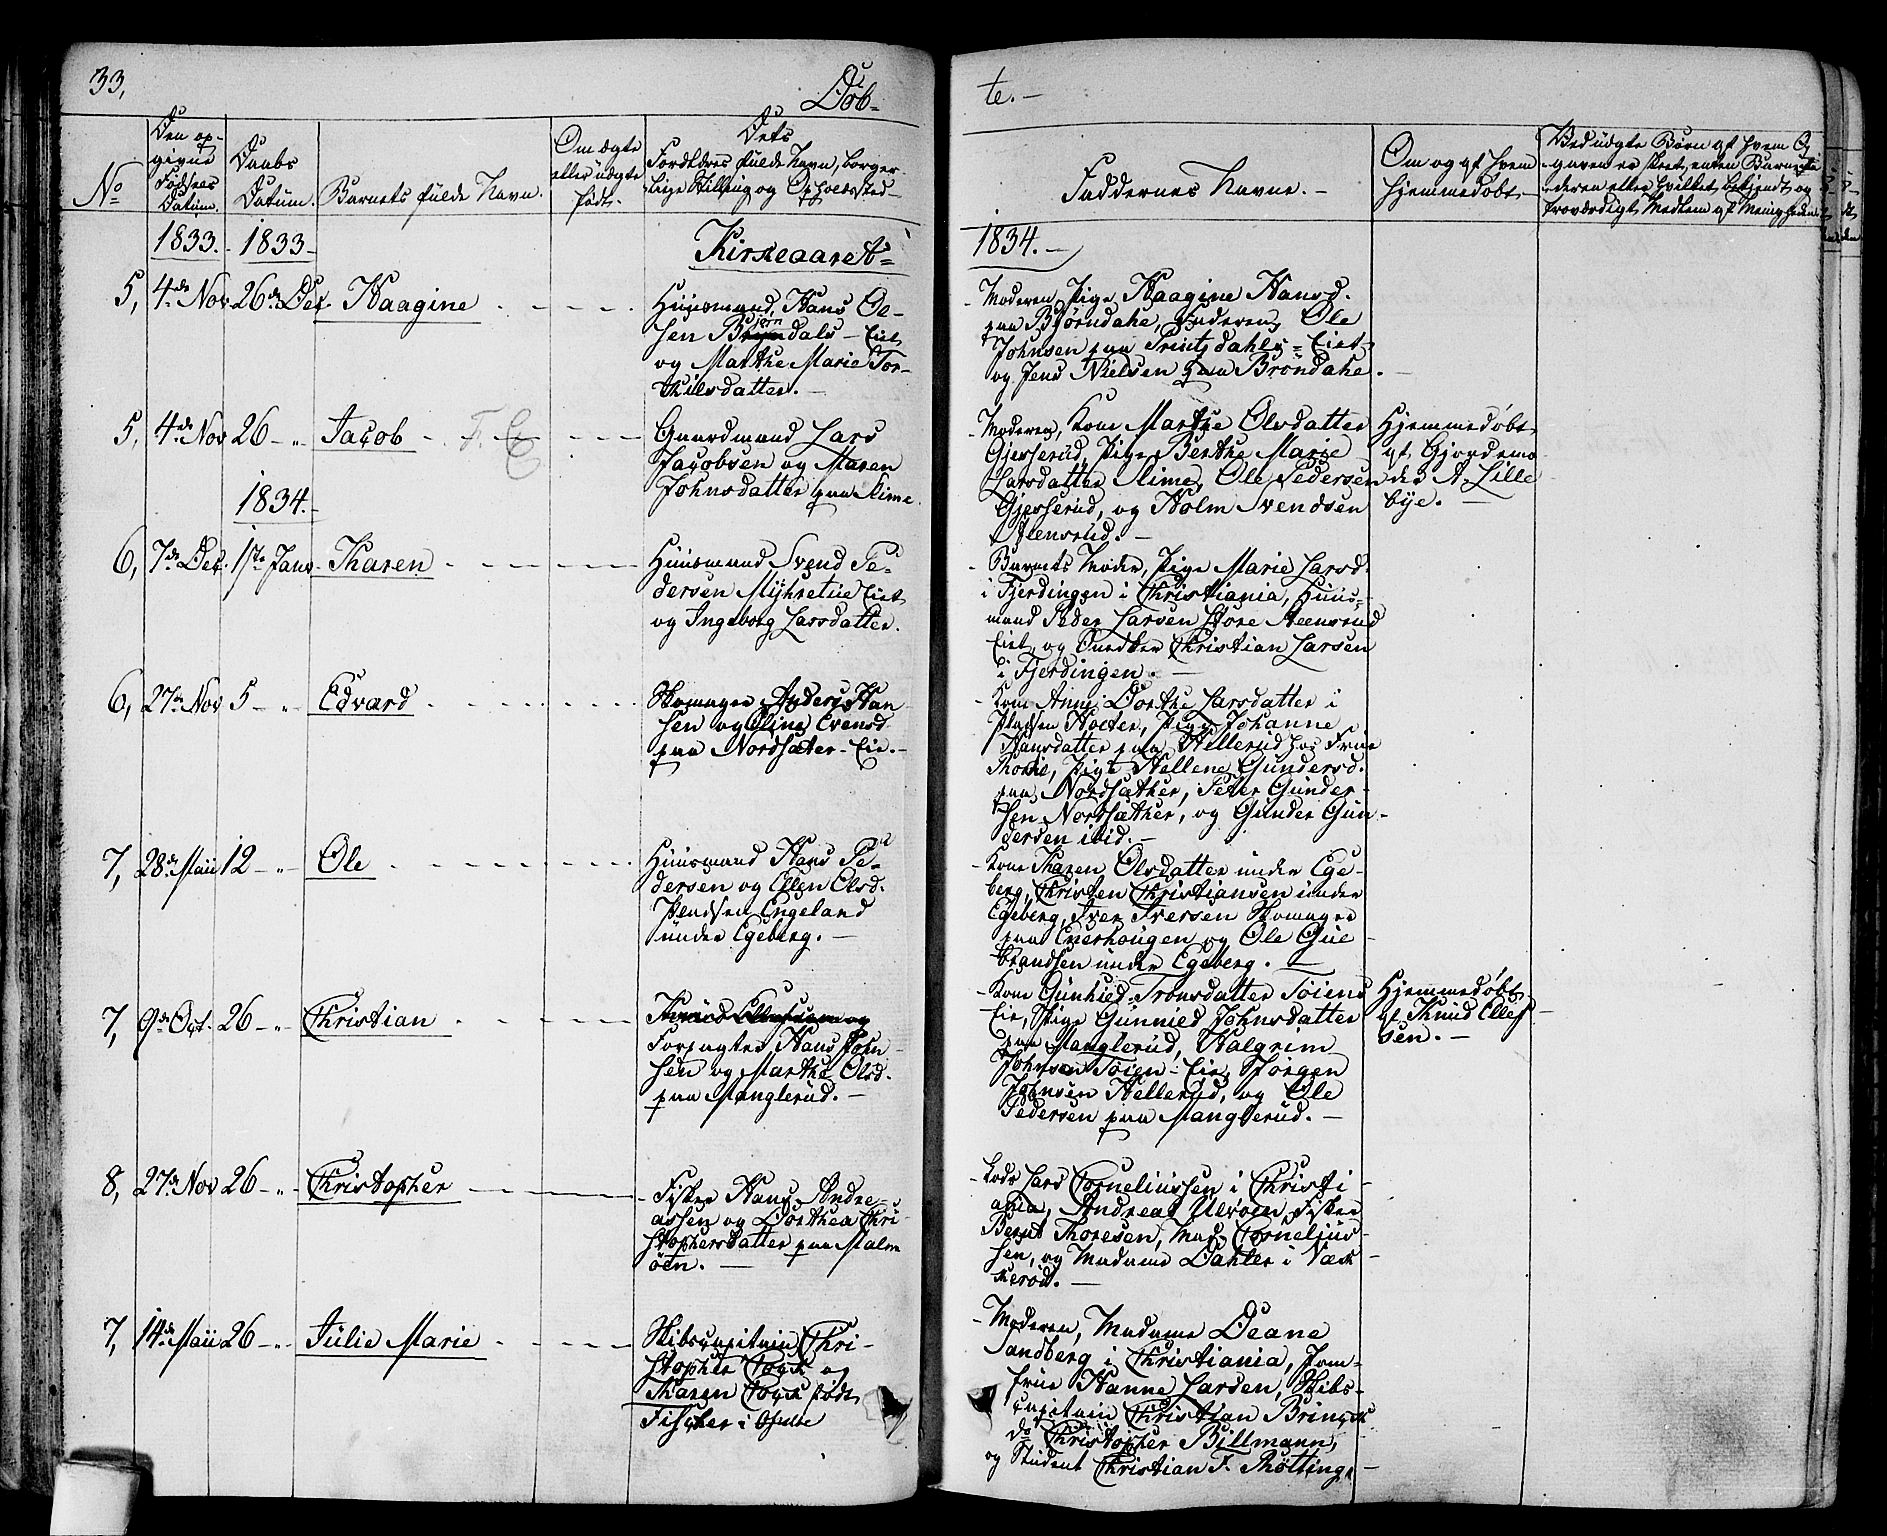 33,
Døb-
te. -
No
Den op-
givne
Fødsels
Datum.
Daabs
Datum.
Barnets fulde Navn.
Om ægte
eller uægte
født.
Dets
Forældres fulde Navn, borger-
lige Stilling og Opholdssted
Faddernes Navne. -
Om og af hvem
hjemmedøbt.
Ved uægte Børn af hvem Op-
gaven er skeet, enten Barnets Fa-
deren eller hvilket bekjendt og
troværdigt Medlem af Menigheden
1833. 1833 Kirkeaaret 1834. -
5, 4de Nov 26de Dec. Haagine
Huusmand Hans Ol-
sen Bjørndals - Eiet
og Marthe Marie Tor-
kilsdatter. -
- Moderen, Pige Haagine Hansd.
paa Bjørndahl, Faderen, Ole
Johnsen paa Printzdahls-Eiet
og Jens Nielsen paa Brøndahl. -
5, 4de Nov 26 - „ Jacob F. E
Gaardmand Lars
Jacobsen og Maren
Johnsdatter paa Slime.
- Moderen, Kone Marthe Olsdatter
Gjesserud, Pige Berthe Marie
Larsdatter Slime, Ole Pedersen
Gjesserud, og Holm Svendsen
Østensrud. -
Hjemmedøbt
af Gjordemo-
der A. Lille
bye. -
1834. -
6, 7de Dec. 1ste Janr. Karen
Huusmand Svend Pe-
dersen Myhretue Eiet
og Ingeborg Larsdatter.
- Barnets Moder, Pige Marie Larsd.
i Fjerdingen i Christiania, Huus-
mand Peder Larsen Store Steensrud
Eiet, og Christian Larsen
i Fjerdingen. -
6, 27de Nov 5 - „ Edvard
Skomager Anders Han
sen og Oline Evensd.
paa Nordsæter - Eie. -
- Kone Anne Dorthe Larsdatter i
Pladsen Holter, Pige Johanne
Hansdatter paa Hellerud hos Frue
Pige Hellene Gundersd.
paa Nordsæther, Peter Gunder-
sen Nordsæther, og Gunder Gun-
dersen ibid. -
7, 28de Maii 12 - „ Ole
Huusmand Hans Pe-
dersen og Ellen Olsd.
Pladsen Engeland
under Egeberg. -
- Kone Karen Olsdatter under Ege-
berg, Christen Christiansen under
Egeberg, Iver Iversen Skomager
paa Enerhougen og Ole Gul
brandsen under Egeberg. -
7, 9de Oct. 26 - „ Christian
Forpagter Hans John
sen og Marthe Olsd.
paa Manglerud. -
- Kone Gunhild Tronsdatter Töiens
Eie, Pige Gunnild Johnsdatter
paa Manglerud, Halgrim
Johnsen Töien - Eie, Jörgen
Johnsen Hellerud, og Ole
Pedersen paa Manglerud. -
Hjemmedøbt
af Knud Ellef
sen. -
8, 27de Nov 26 - „ Christopher
- Fisker Hans Andre-
assen og Dorthea Chri
stophersdatter paa Malm
öen. -
- Lods Lars Corneliussen i Christi
ania, Andreas Ulvöen, Fisker
Bernt Thoresen, Mad. Cornelius
sen, og Madame Dahler i Næs
7, 14de Maii 26 - „ Julie Marie
Skibscapitain Chri-
stopher og
Karen født
Fischer i
- Moderen, Madame Deane
Sandberg i Christiania, Jom-
frue Hanne Larsen, Skibs-
capitain Christian Brinck
do Christopher Billmann,
og Student Christian F.